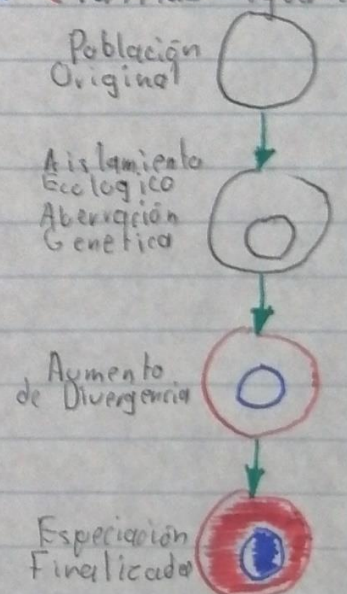 Población
Original
Aislamiento
Ecologico
Aberración
Genetica
Aumento
de Divergencia
Especiación
Finalizada